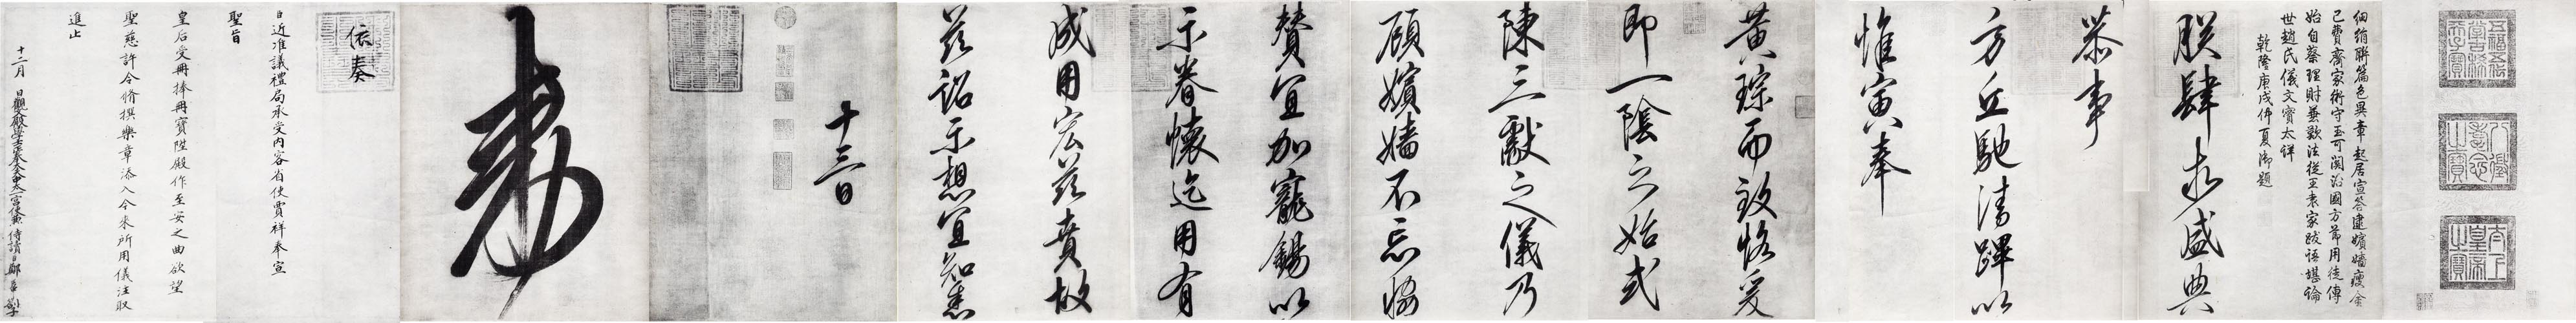 五福五代堂古稀天子寶
八徵耄念之寶
太上皇帝之寶
細絹聯篇色異章起居宣答逮嬪嬙瘦金
已費齊家術守玉可關治國方節用徒傳
始自蔡理財兼歎法從王袁家跋語堪論
世趙氏儀文實太詳
乾隆庚戌仲夏御題
朕肆求盛典
恭事
方丘馳清蹕以
惟寅奉
黃琮而致恪爰
即一陰之始式
陳三獻之儀乃
顧嬪嬙不忘協
贊宜加寵錫以
示眷懷迄用有
成用宏茲賁故
茲詔示想宜知悉
十三日
依奏
日近准議禮局承受內客省使賈祥奉宣
聖旨
皇后受冊捧冊寶陞殿作至安之曲欲望
聖慈許令脩撰樂章添入今來所用儀注取
進止
十二月 日